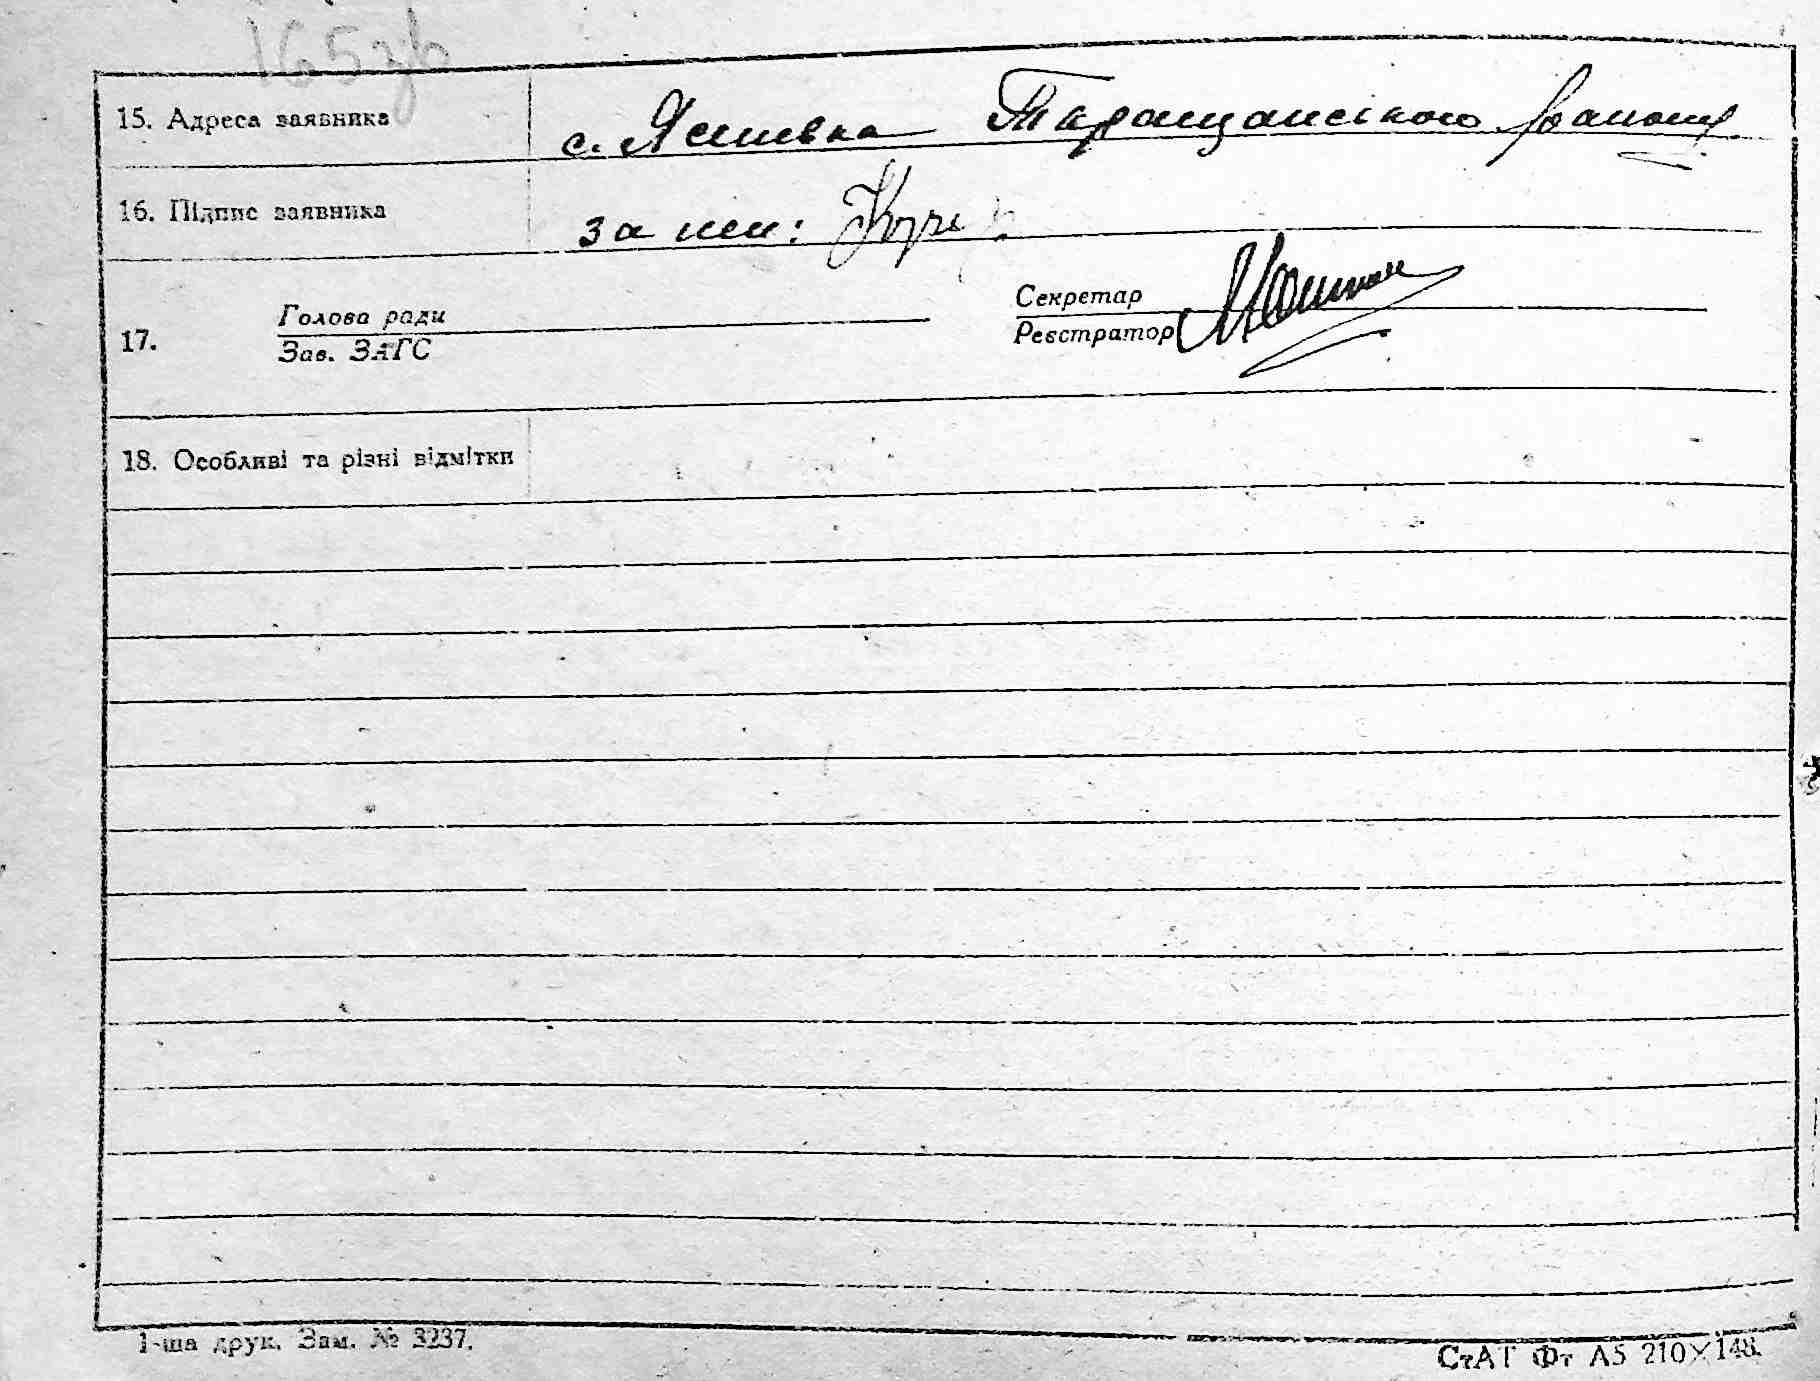 165зв
15. Адреса заявника с. Ясинівка Таращанського району
16. Підпис заявника за неп:
17. Голова ради Секретар
Зав. ЗАГС Реєстратор
18. Особливі та різні відмітки
1-ша друк. Зам. № 3237.
СтАТ Фт А5 210×148.